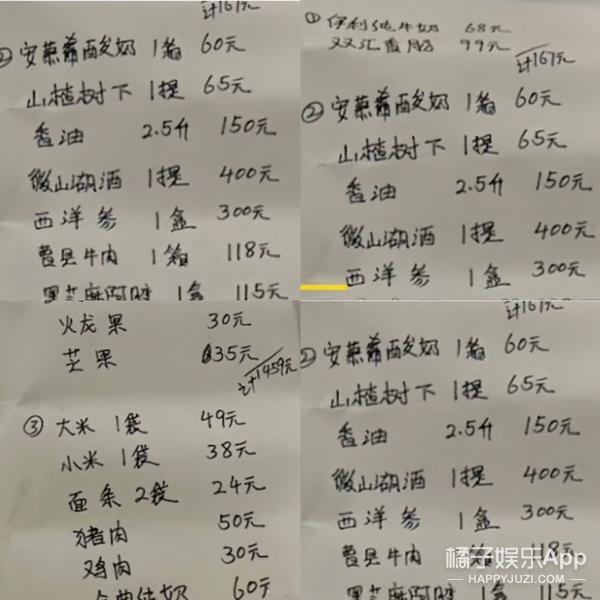 计161元
②安慕希酸奶 1箱 60元
山楂树下 1提 65元
香油 2.5升 150元
微山湖酒 1提 400元
西洋参 1盒 300元
曹县牛肉 1箱 118元
黑芝麻阿胶 1盒 115元
①伊利纯牛奶 68元
双汇香肠 99元
计167元
②安慕希酸奶 1箱 60元
山楂树下 1提 65元
香油 2.5升 150元
微山湖酒 1提 400元
西洋参 1盒 300元
火龙果 30元
芒果 35元
计1459元
③大米 1袋 49元
小米 1袋 38元
面条 2袋 24元
猪肉 50元
鸡肉 30元
纯奶 60元
计161元
②安慕希酸奶 1箱 60元
山楂树下 1提 65元
香油 2.5升 150元
微山湖酒 1提 400元
西洋参 1盒 300元
曹县牛肉 1箱 118元
黑芝麻阿胶 1盒 115元
橘子娱乐App
HAPPYJUZI.COM